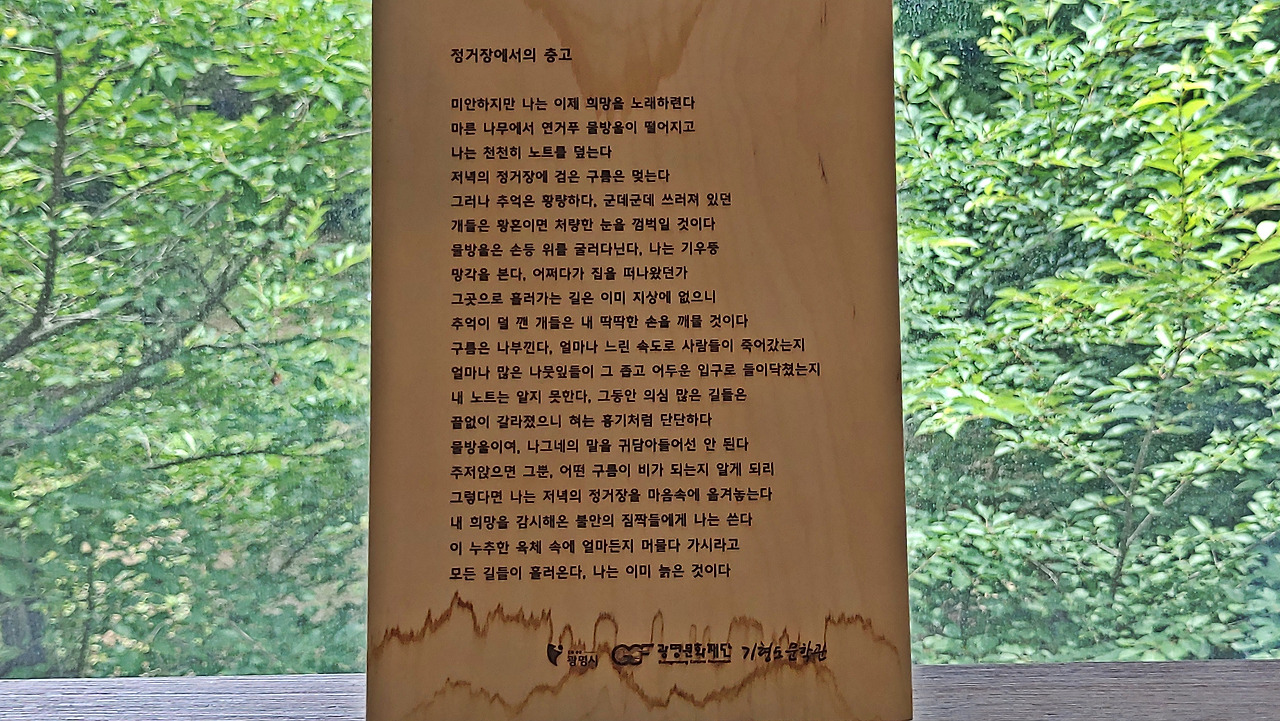 정거장에서의 충고
미안하지만 나는 이제 희망을 노래하련다
마른 나무에서 연거푸 물방울이 떨어지고
나는 천천히 노트를 덮는다
저녁의 정거장에 검은 구름은 멎는다
그러나 추억은 황량하다, 군데군데 쓰러져 있던
개들은 황혼이면 처량한 눈을 껌벅일 것이다
물방울은 손등 위를 굴러다닌다, 나는 기우뚱
망각을 본다, 어쩌다가 집을 떠나왔던가
그곳으로 흘러가는 길은 이미 지상에 없으니
추억이 덜 깬 개들은 내 딱딱한 손을 깨물 것이다
구름은 나부낀다, 얼마나 느린 속도로 사람들이 죽어갔는지
얼마나 많은 나뭇잎들이 그 좁고 어두운 입구로 들이닥쳤는지
내 노트는 알지 못한다, 그동안 의심 많은 길들은
끝없이 갈라졌으니 혀는 흉기처럼 단단하다
물방울이여, 나그네의 말을 귀담아들어선 안 된다
주저앉으면 그뿐, 어떤 구름이 비가 되는지 알게 되리
그렇다면 나는 저녁의 정거장을 마음속에 옮겨놓는다
내 희망을 감시해온 불안의 짐짝들에게 나는 쓴다
이 누추한 육체 속에 얼마든지 머물다 가시라고
모든 길들이 흘러온다, 나는 이미 늙은 것이다
광명시 광명문화재단 기형도문학관